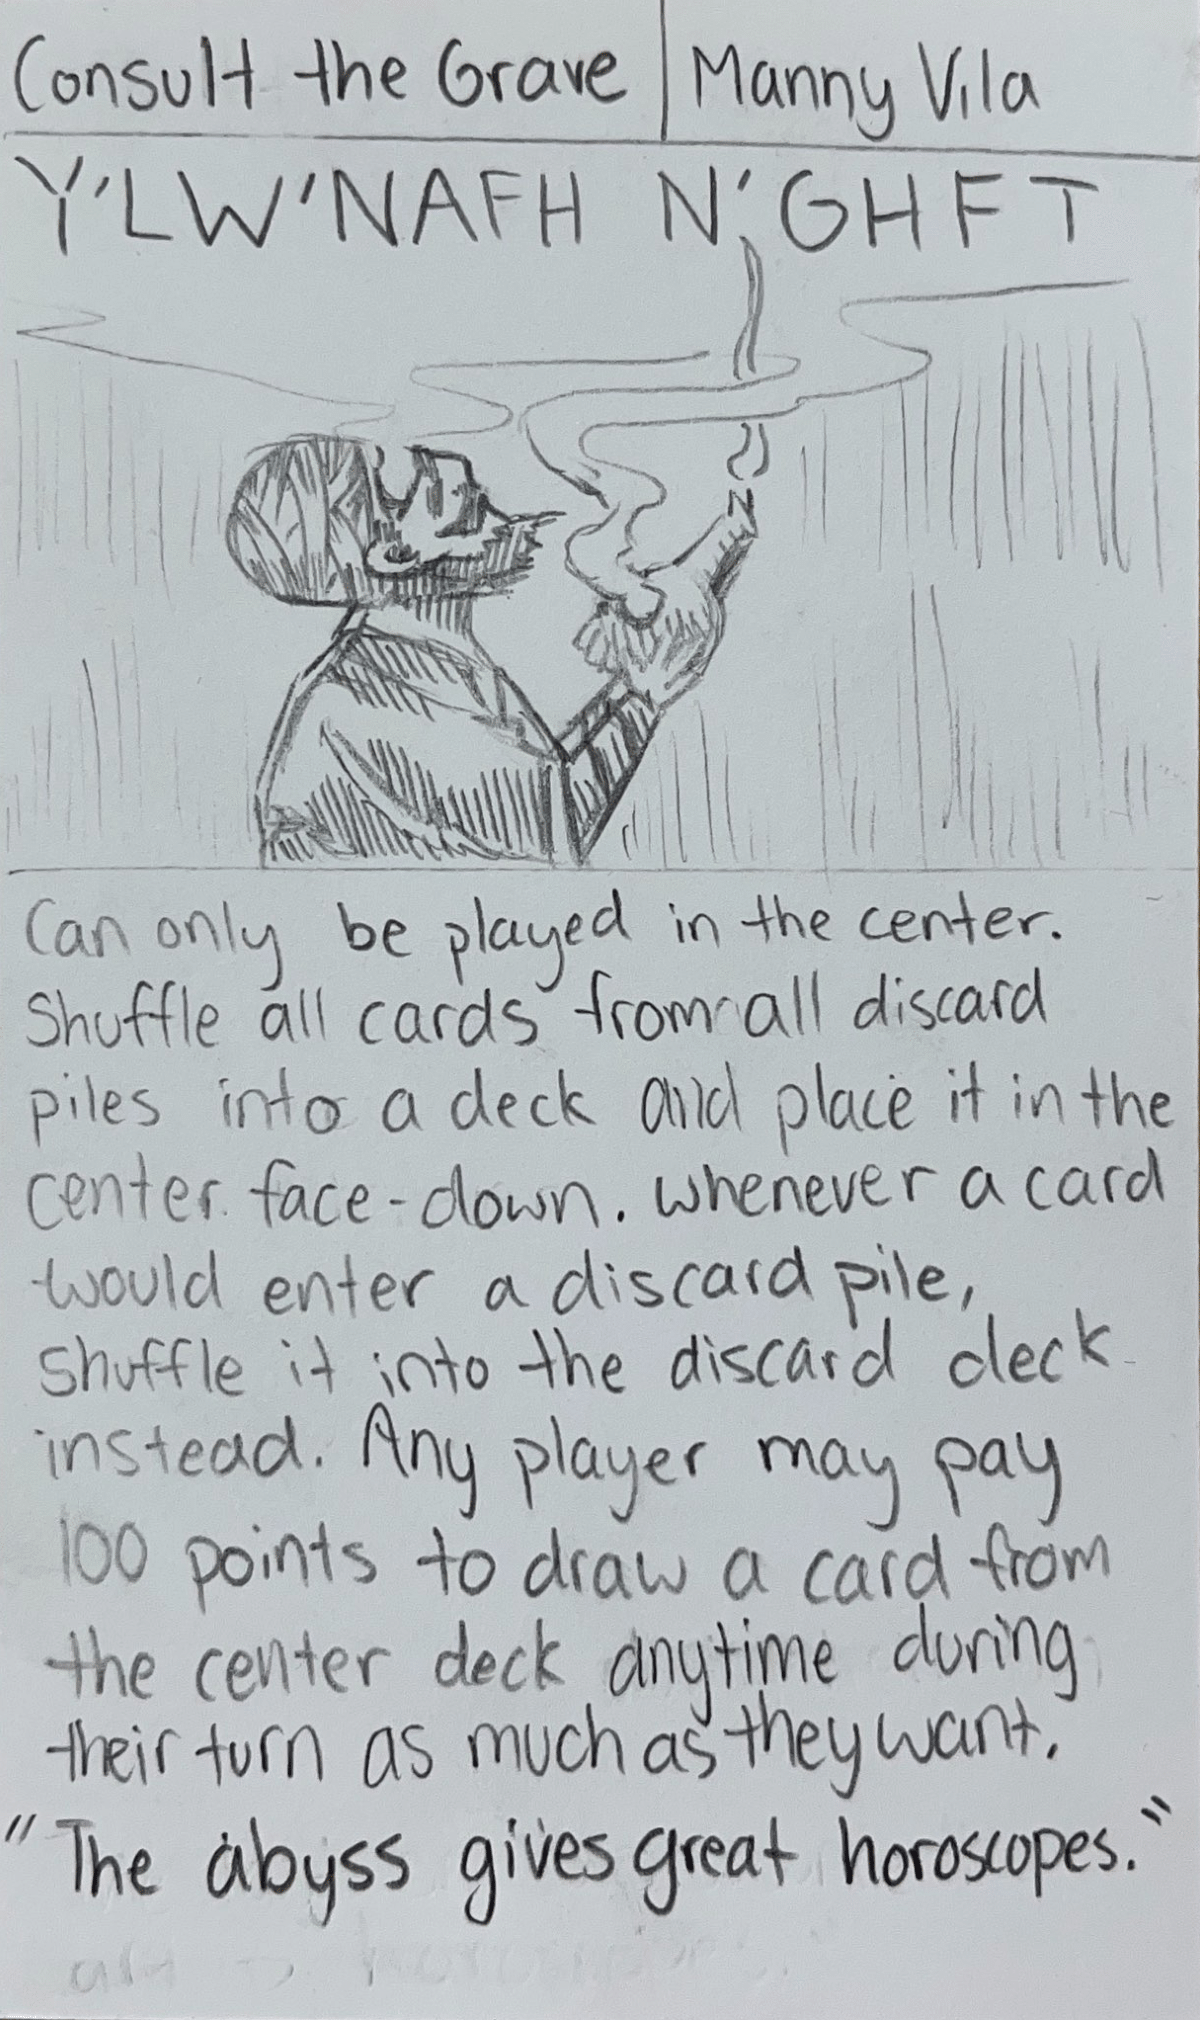 Consult the Grave | Manny Vila
Y'LW'NAFH N'GHFT
Can only be played in the center.
Shuffle all cards from all discard
piles into a deck and place it in the
center face-down. whenever a card
would enter a discard pile,
shuffle it into the discard deck
instead. Any player may pay
100 points to draw a card from
the center deck anytime during
their turn as much as they want.
"The abyss gives great horoscopes."